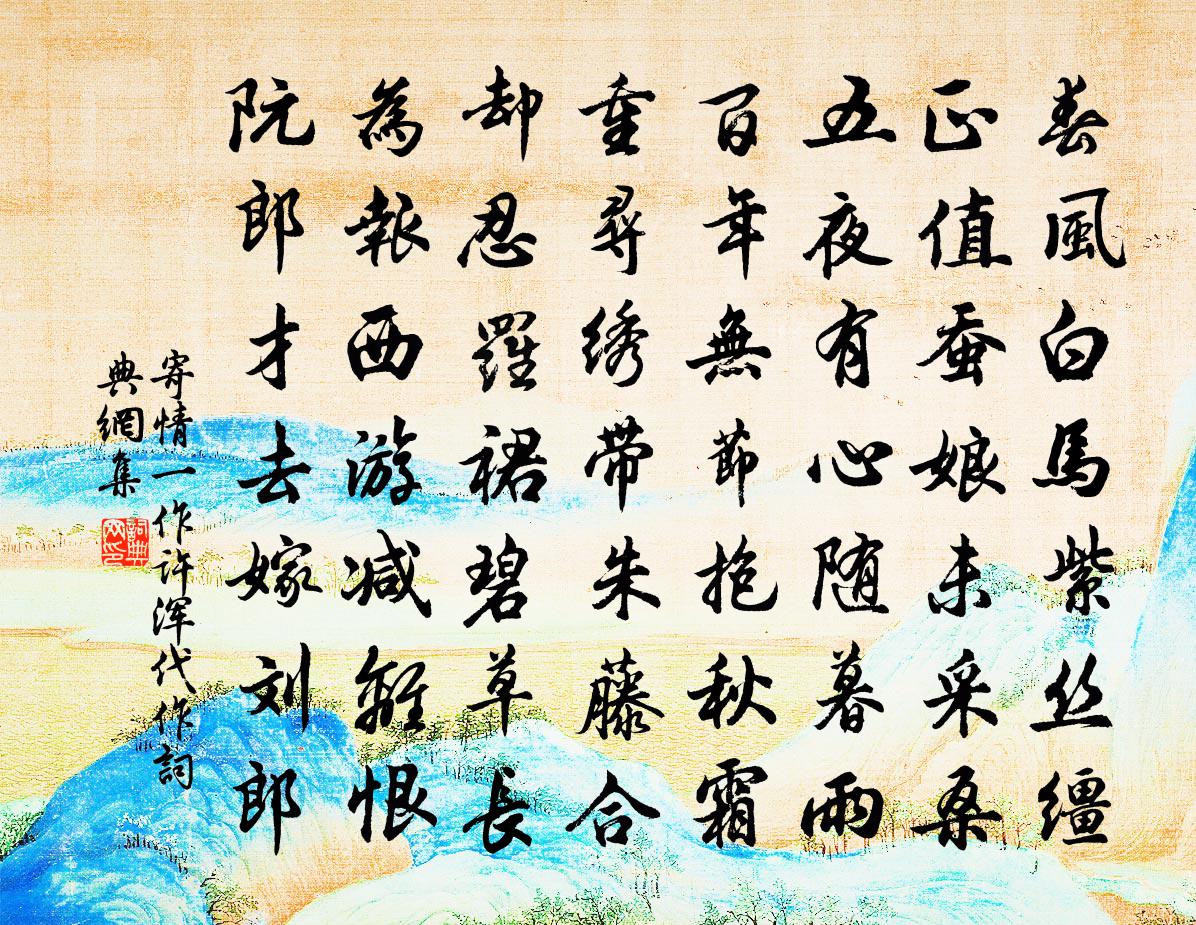 春風白馬紫丝缰
正值蚕娘未采桑
五夜有心随暮雨
百年無節抱秋霜
重尋绣带朱藤合
却忍羅裙碧草長
為報西游减離恨
阮郎才去嫁刘郎
寄情一作许浑代作詞
典網集
詞典
网印